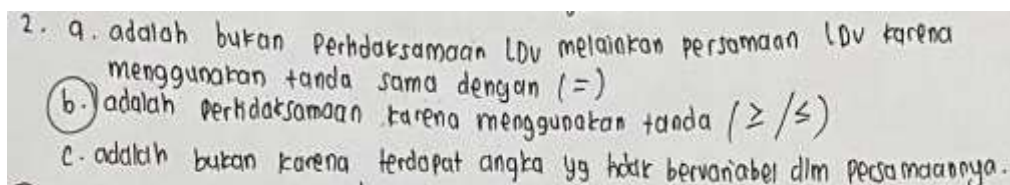 2. a. adalah bukan Pertidaksamaan LDV melainkan persamaan LDV karena
menggunakan tanda sama dengan (=)
b. adalah pertidaksamaan karena menggunakan tanda (≥/≤)
c. adalah bukan karena terdapat angka yg tidak bervariabel dlm persamaannya.